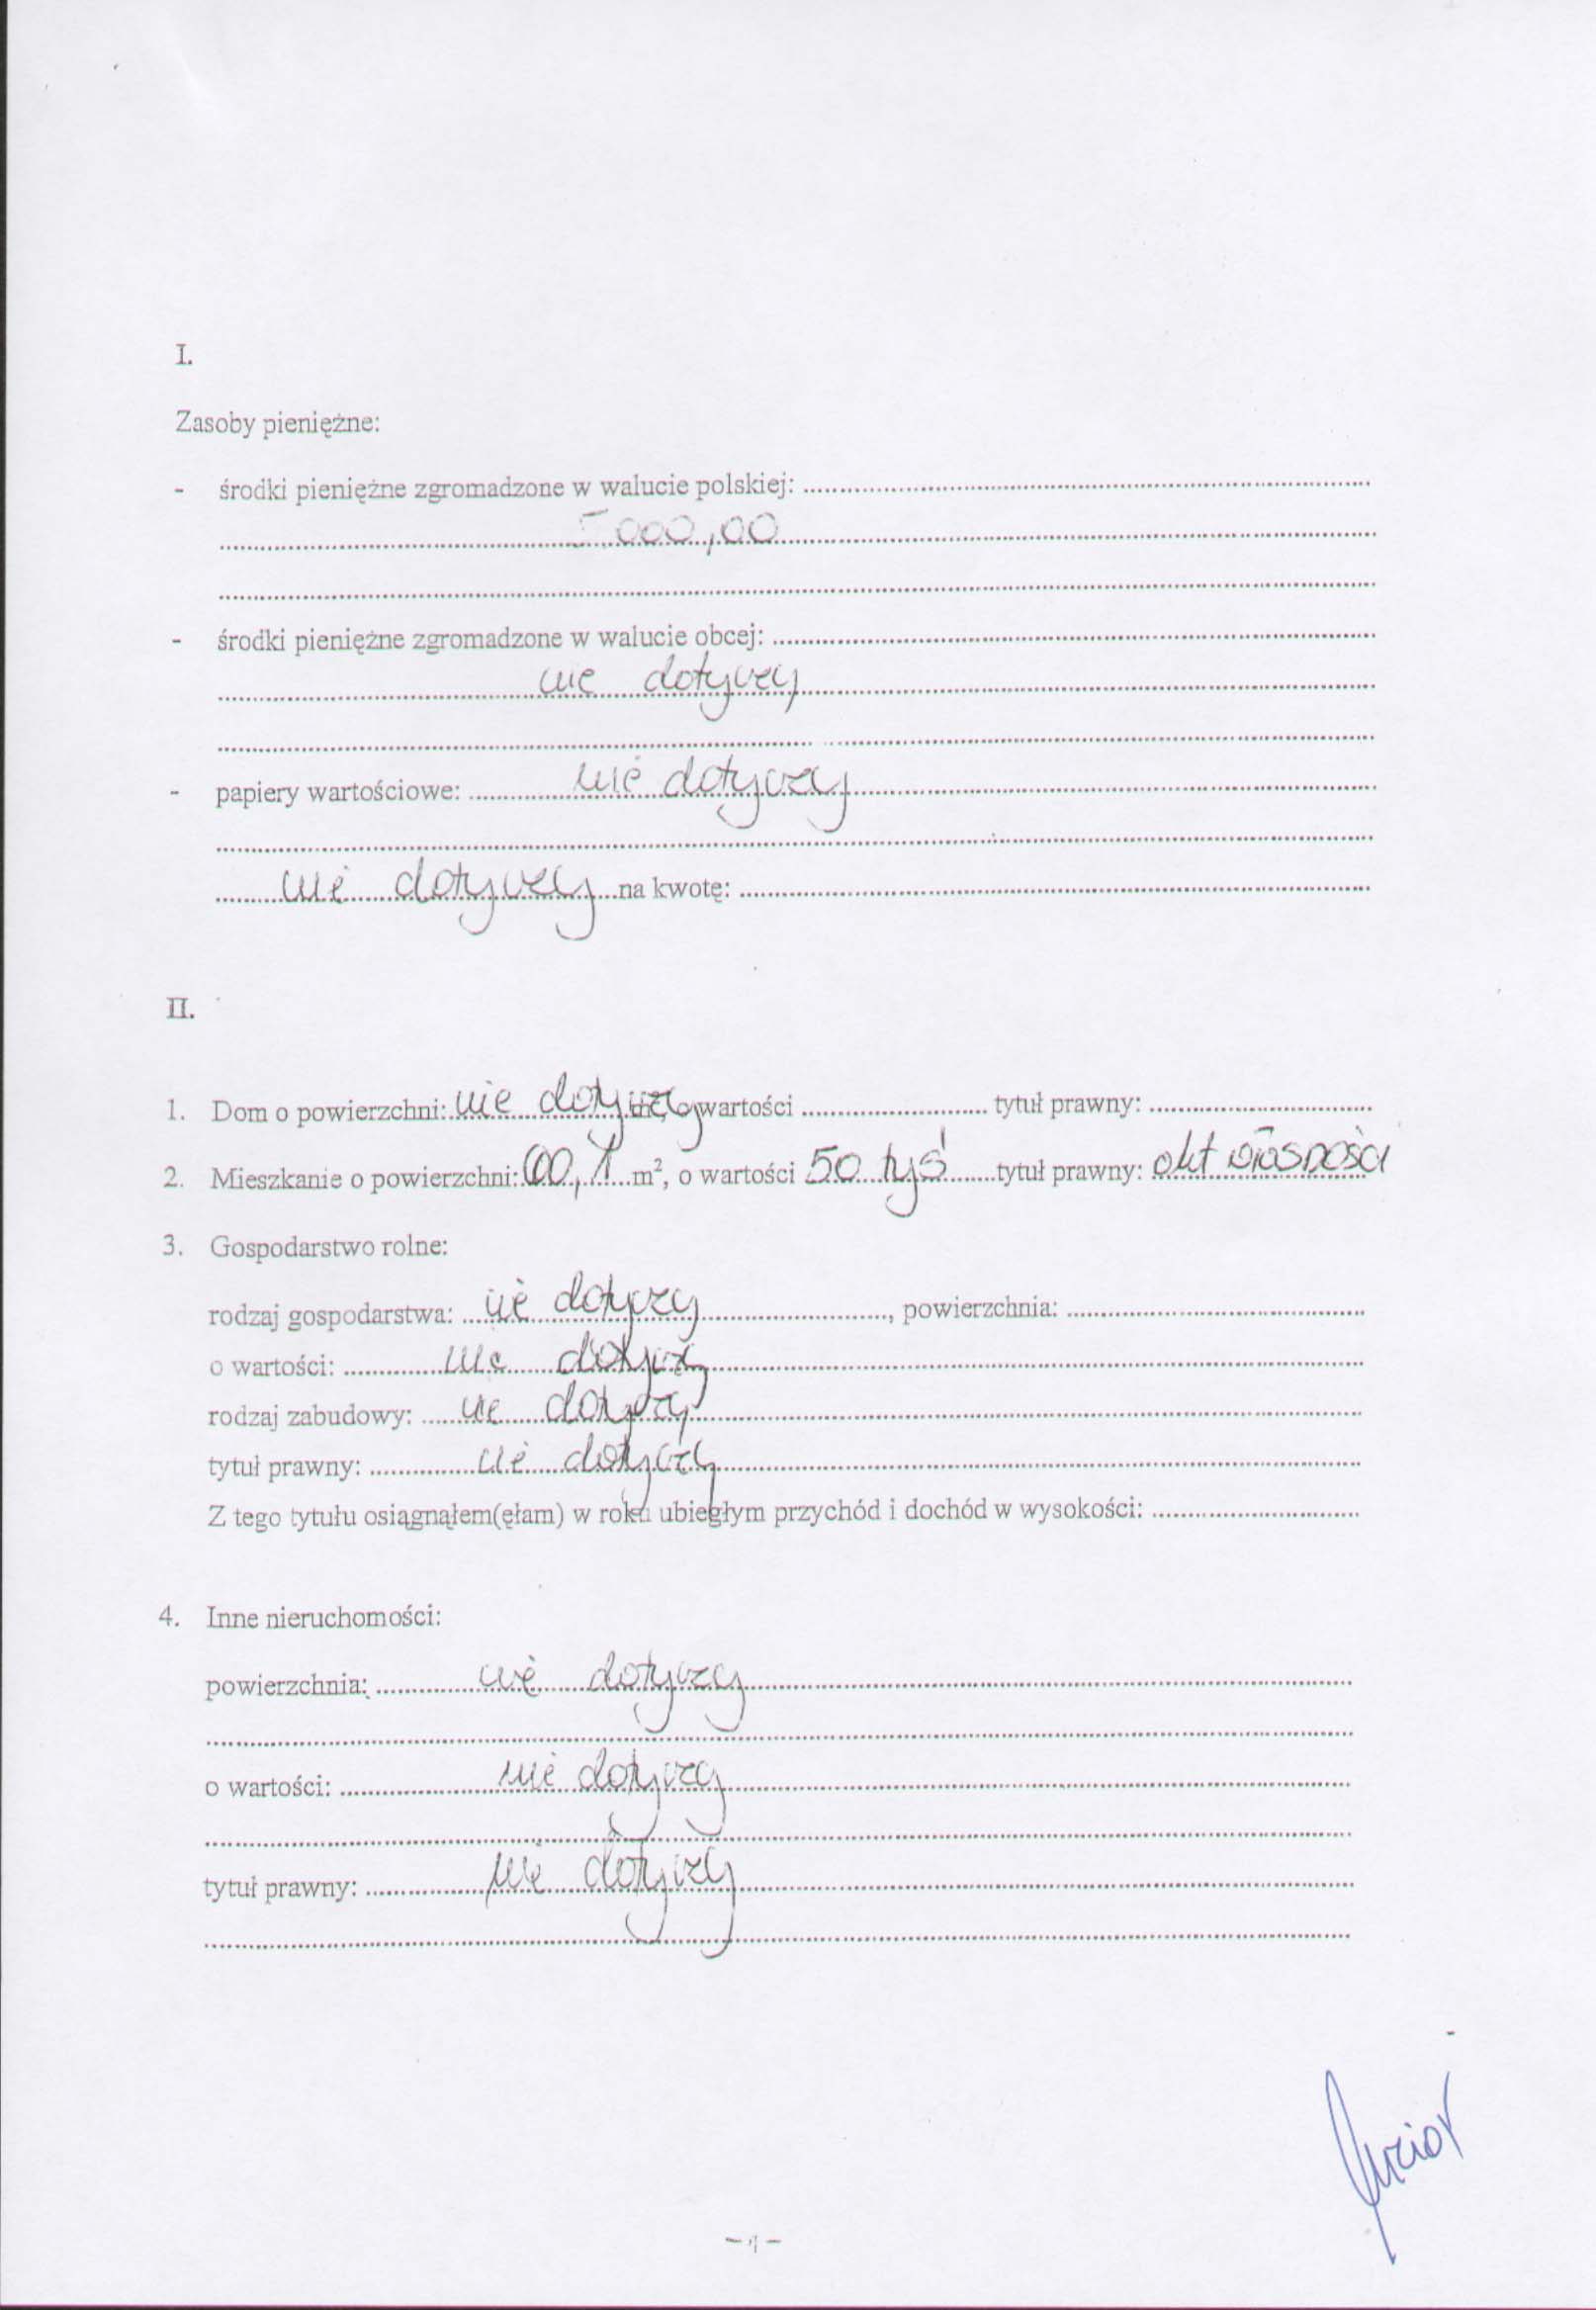 I.
Zasoby pieniężne:
- środki pieniężne zgromadzone w walucie polskiej: ........................................
5.000,00
- środki pieniężne zgromadzone w walucie obcej: ........................................
nie dotyczy
- papiery wartościowe: nie dotyczy
nie dotyczy na kwotę: ........................................
II.
1. Dom o powierzchni: nie dotyczy m², o wartości .................... tytuł prawny: ....................
2. Mieszkanie o powierzchni: m², o wartości 50 tyś tytuł prawny: akt własności
3. Gospodarstwo rolne:
rodzaj gospodarstwa: nie dotyczy, powierzchnia: ....................
o wartości: nie dotyczy
rodzaj zabudowy: nie dotyczy
tytuł prawny: nie dotyczy
Z tego tytułu osiągnąłem(ęłam) w roku ubiegłym przychód i dochód w wysokości: ....................
4. Inne nieruchomości:
powierzchnia: nie dotyczy
o wartości: nie dotyczy
tytuł prawny: nie dotyczy